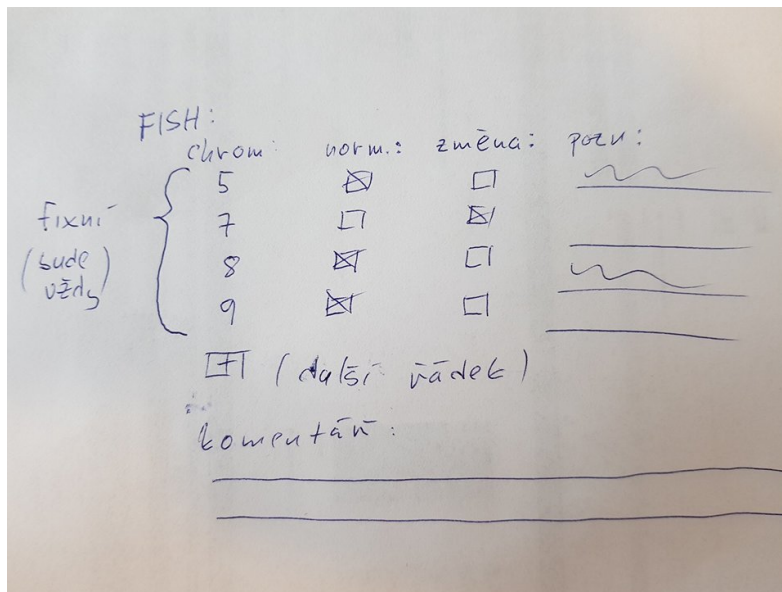 FISH:
chrom: norm.: změna: pozn:
5
7
8
9
fixní
(bude
vždy)
+ (další řádek)
komentář: